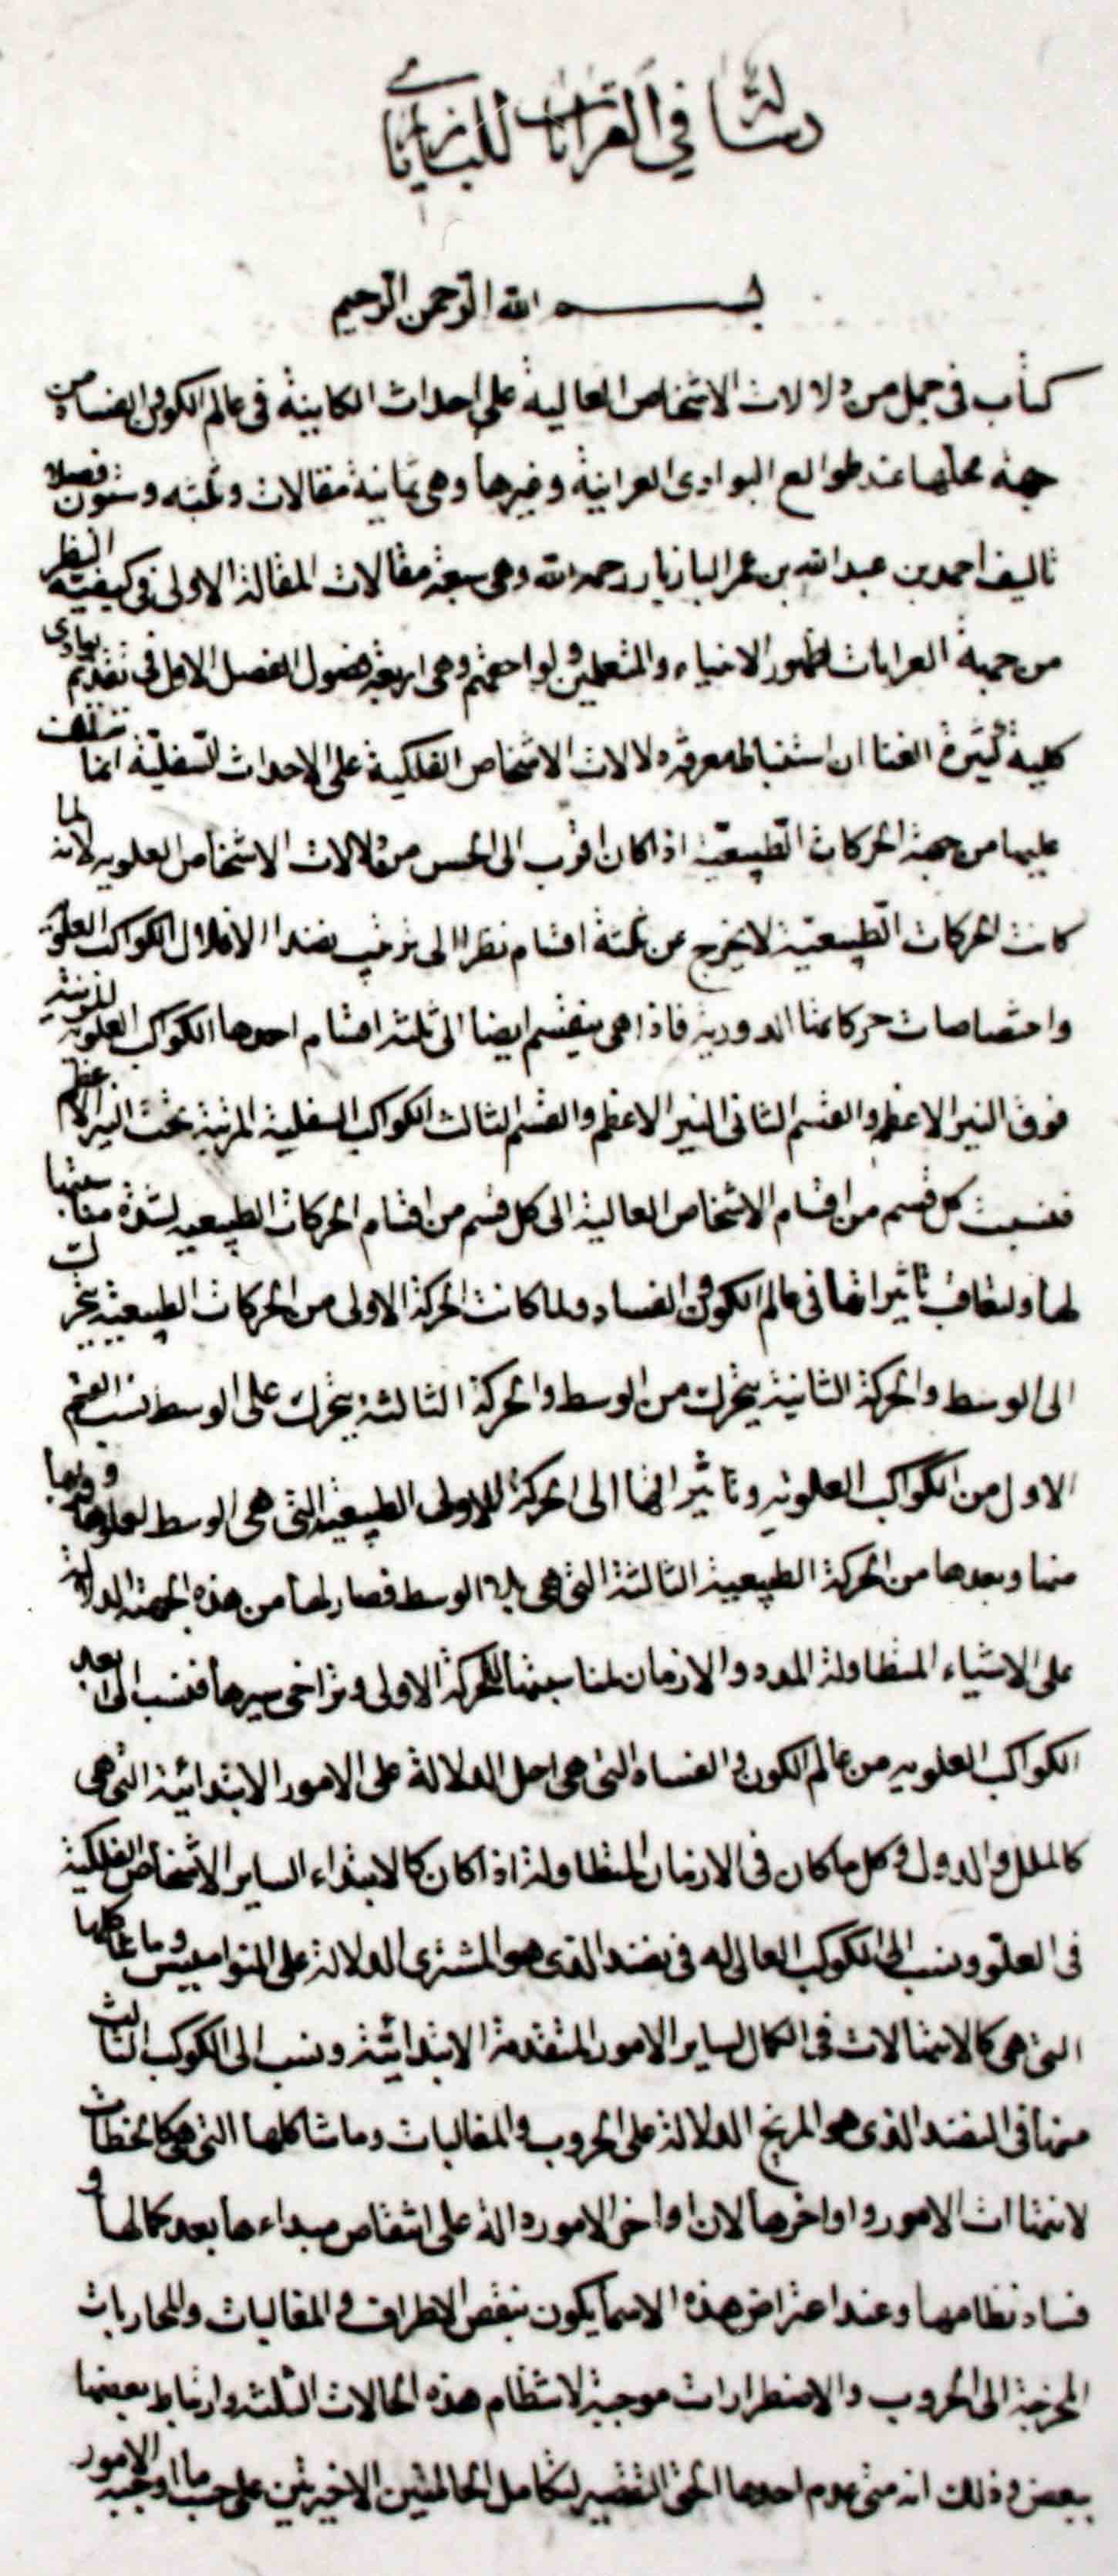 رسالة في القرانات للبازيار
بسم الله الرحمن الرحيم
كتاب في جمل من دلالات الاشخاص العالية على احداث الكاينة في عالم الكون والفساد من
جهة محلها عند طوالع البوادى القرانية وغيرها وهى ثمانية مقالات وثلثه وستون فصلا
تاليف احمد بن عبد الله بن عمر البازيار رحمه الله وهى سبعة مقالات المقالة الاولى فى كيفية النظر
من جهة القرانات لظهور الانبياء والمتعلمين ولواحقهم وهى اربعة فصول الفصل الاول فى تقديم بوادى
كلية كثيرة الغنا ان استنباط معرفة دلالات الاشخاص الفلكية على الاحداث السفلية انما
عليها من جهة الحركات الطبيعية اذا كان اقرب الى الحس من دلالات الاشخاص العلوية لانه لما
كانت الحركات الطبيعية لا يخرج عن ثلثة اقسام نظرا الى ترتيب نضد الافلاك الكواكب العلوية
واختصاصات حركاتها الدورية فاذا هى ينقسم ايضا الى ثلثة اقسام احدها الكواكب العلوية
فوق النير الاعظم والقسم الثانى النير الاعظم والقسم الثالث الكواكب السفلية المرتبة تحت النير الاعظم
فنسبت كل قسم من اقسام الاشخاص العالية الى كل قسم من اقسام الحركات الطبيعية لشدة مناسبتها
لها تاثيراتها فى عالم الكون والفساد ولما كانت الحركة الاولى من الحركات الطبيعية يتحرك
الى الوسط والحركة الثانية يتحرك من الوسط والحركة الثالثة يتحرك على الوسط نسب القسم
الاول من الكواكب العلوية وتاثيراتها الى الحركة الاولى الطبيعية التى هى الوسط لعلوها وقربها
منها وبعدها من الحركة الطبيعية الثالثة التى هى الوسط فصار لها من هذه الجهة الدلالة
على الاشياء المتطاولة المدد والازمان لمناسبتها للحركة الاولى وتراخى سيرها فنسب الى ابعد
الكواكب العلوية من عالم الكون والفساد التى هى احل الدلالة على الامور الابتدائية التى هى
كالملل والدول وكل ما كان فى الازمان المتطاولة اذا كان كالابتداء لساير الاشخاص الفلكية
فى العلو ونسب الى الكوكب العالى له فى نضد الذى هو المشترى الدلالة على النواميس وما شاكلها
التى هى كالامتثالات فى الكمال لساير الامور المتقدمة الابتدائية ونسب الى الكوكب الثالث
منها فى النضد الذى هو المريخ الدلالة على الحروب والمغالبات وما شاكلها التى هى كانحطاط
لانتهاات الامور واواخرها لان اواخر الامور دالة على انتقاص مبداءها بعد كمالها و
فساد نظامها وعند اعتراض هذه الاسما يكون بنقص الاطراف والمغالبات والمحاربات
المحرجة الى الحروب والاضطرارات موجبة لانتظام هذه الحالات الثلثة وارتباط بعضها
ببعض وذلك انه متى عدم احدها الحق التقصير لتكامل الحالتين الاخيرتين على حسب ما اوجبه الامور